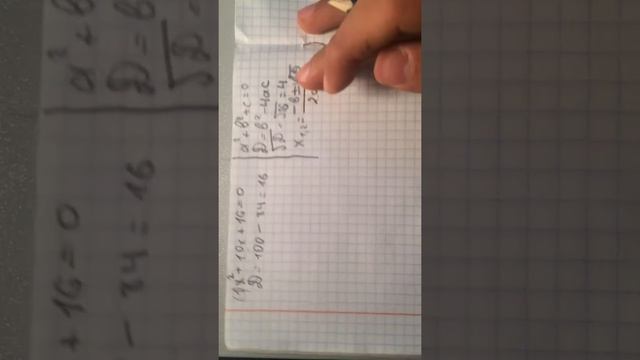 (1)x²+10x+16=0
D=100-84=16
a²+b²+c=0
D=b²-4ac
√D=√16=4
x₁,₂=-b±√